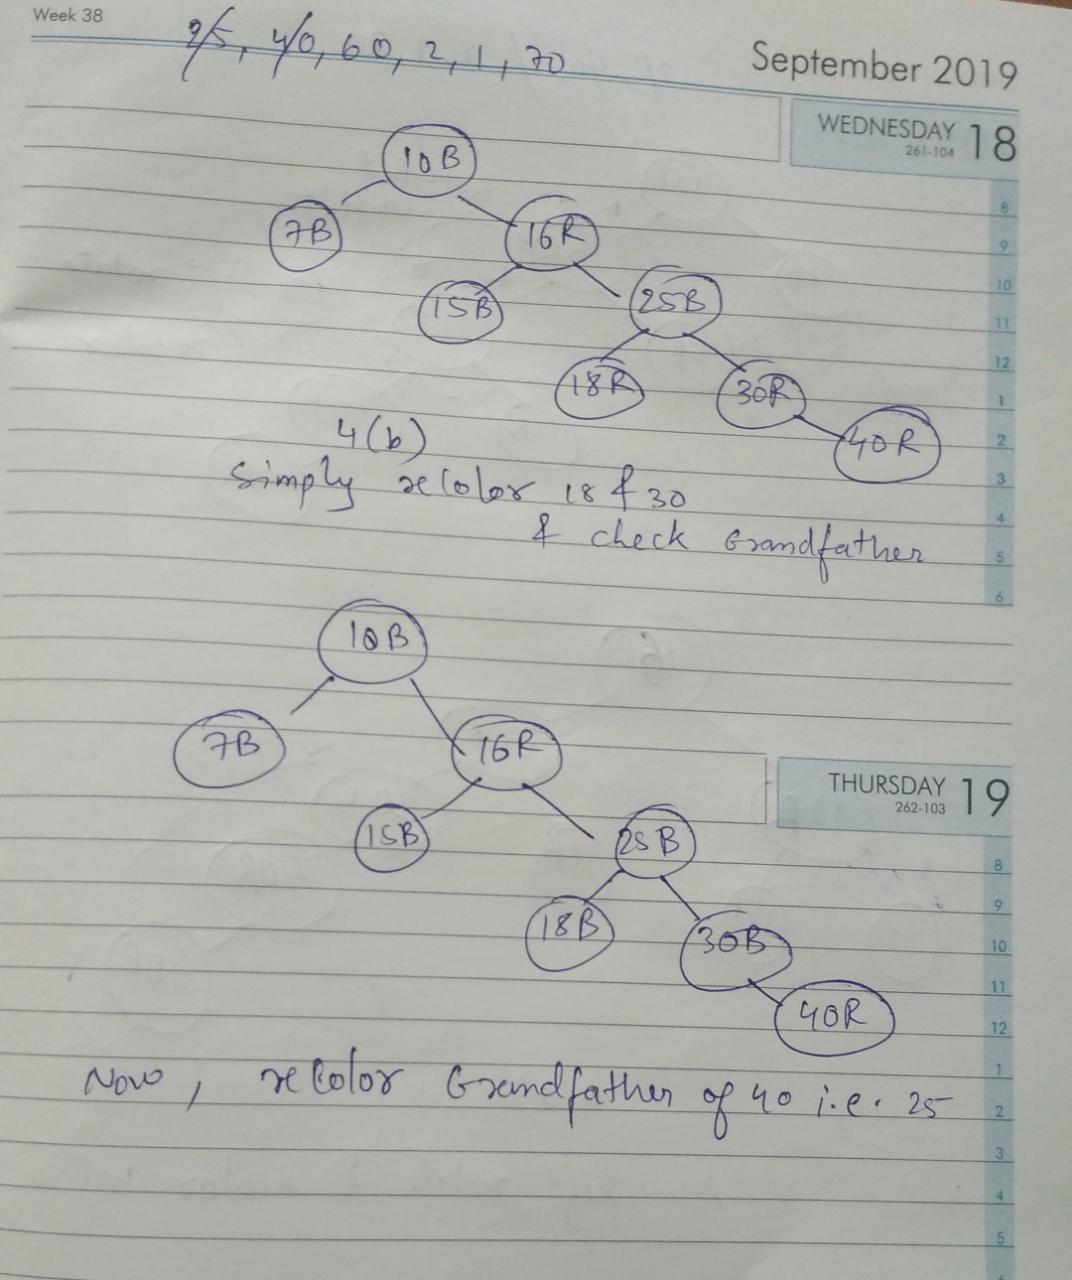 Week 38
25, 40, 60, 2, 1, 70
September 2019
WEDNESDAY 18
261-104
10B
7B
16R
15B
25B
18R
30R
40R
8
9
10
11
12
1
2
3
4
5
6
4(b)
Simply recolor 18 & 30
& check Grandfather
10B
7B
16R
15B
25B
18B
30B
40R
THURSDAY 19
262-103
8
9
10
11
12
1
2
3
4
5
Now, recolor Grandfather of 40 i.e. 25